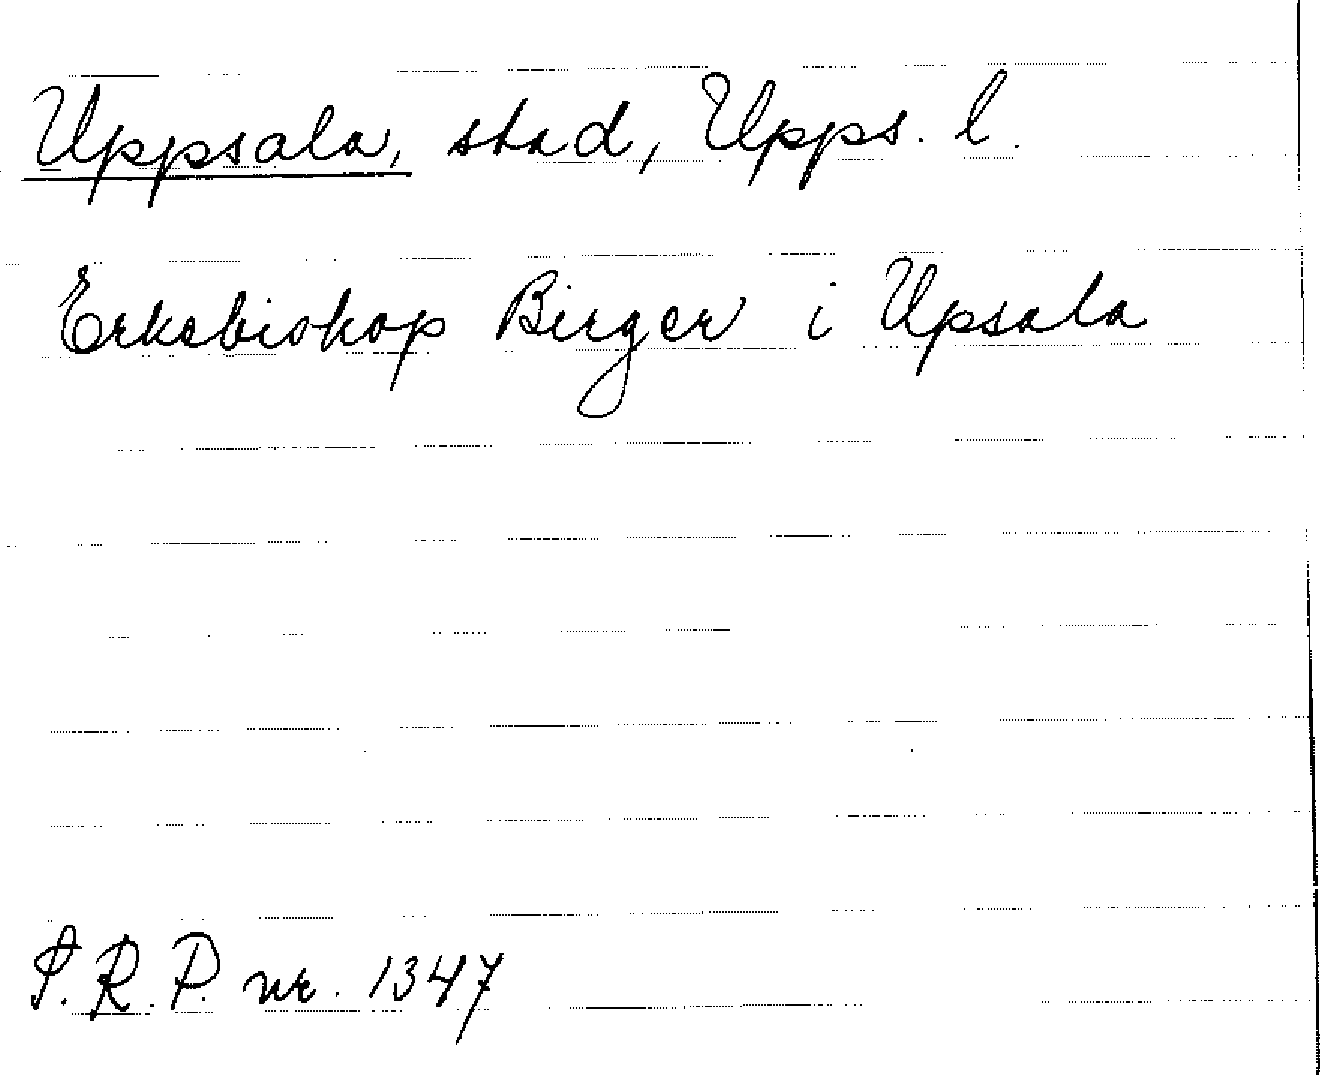 Uppsala, stad, Upps. l.
Erkebiskop Birger i Upsala
S.R.P. nr. 1347